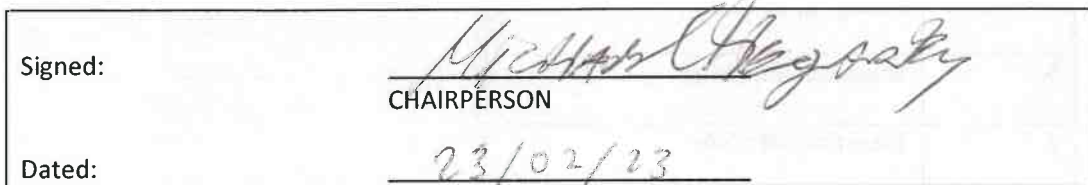 Signed: Michael Hegarty
CHAIRPERSON
Dated: 23/02/23